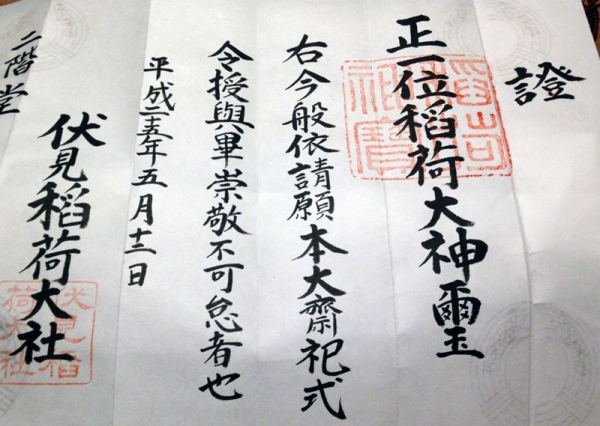 證
正一位稻荷大神璽
右今般依請願本大齋祀式
令授與畢崇敬不可怠者也
平成二十五年五月十二日
伏見稻荷大社
二階堂
伏見稻荷大社